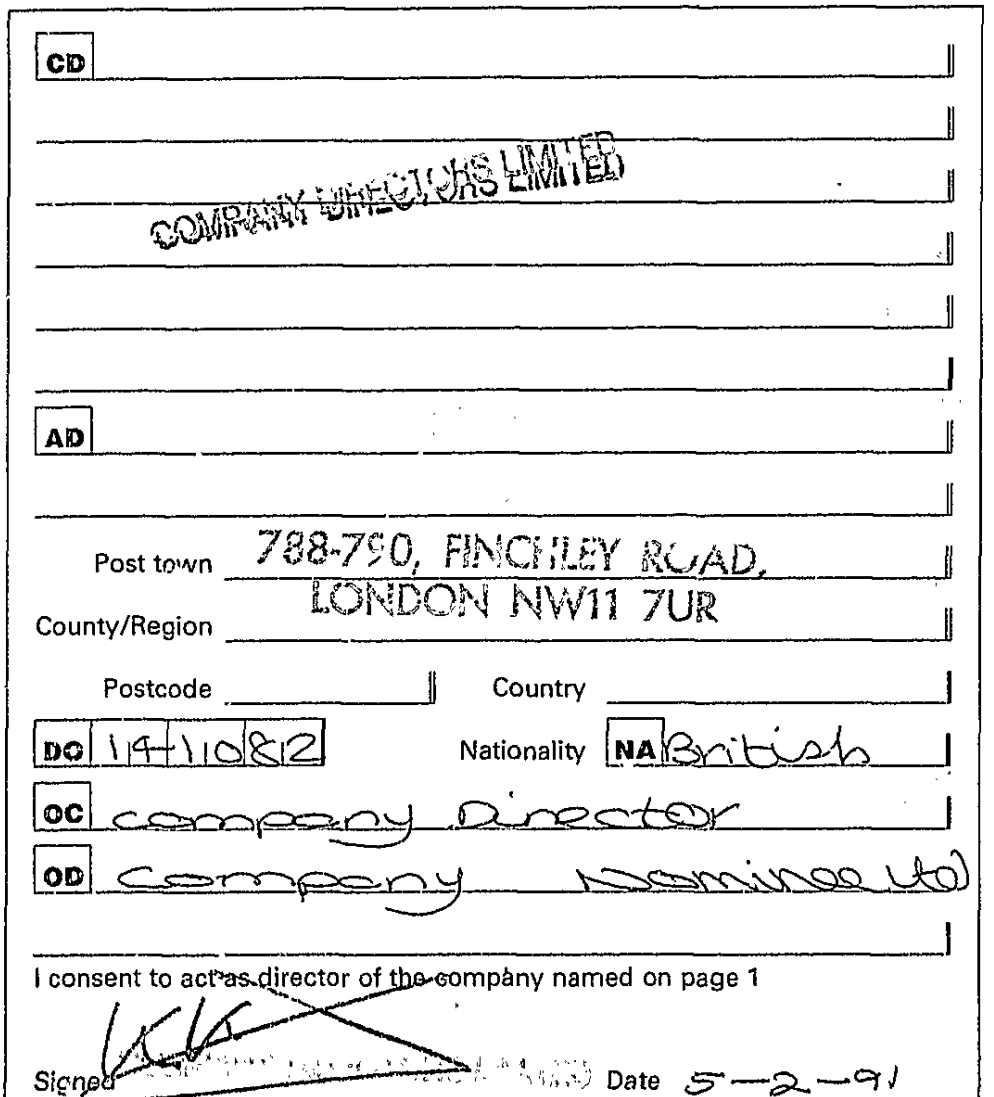 CD
COMPANY DIRECTORS LIMITED
AD
Post town 788-790, FINCHLEY ROAD,
LONDON NW11 7UR
County/Region
Postcode Country
DO 14-11082 Nationality NA British
OC company Director
OD company Nominee Ltd
I consent to act as director of the company named on page 1
Signed Date 5-2-91